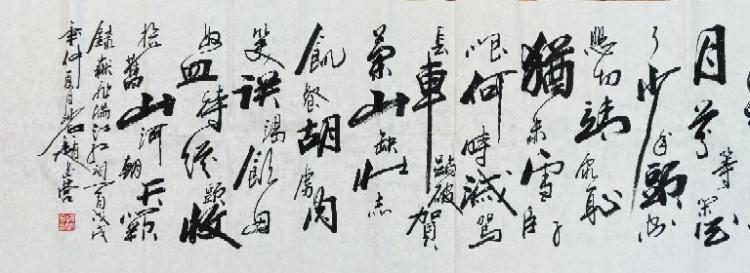 月莫等閑白
了少年頭空
悲切靖康恥
猶未雪臣子
恨何時滅駕
長車踏破賀
蘭山缺壯志
飢餐胡虜肉
笑談渴飲匈
奴血待從頭收
拾舊山河朝天闕
錄岳飛滿江紅詞一首戊戌
年仲夏月